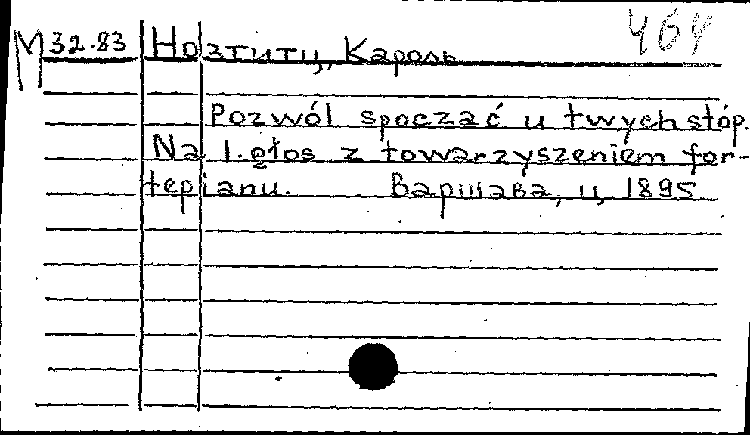 М 32.83 Нозтитц, Кароль 464
Pozwól spocząć u twych stóp.
Na 1. głos z towarzyszeniem for-
tepianu. Варшава, ц, 1895